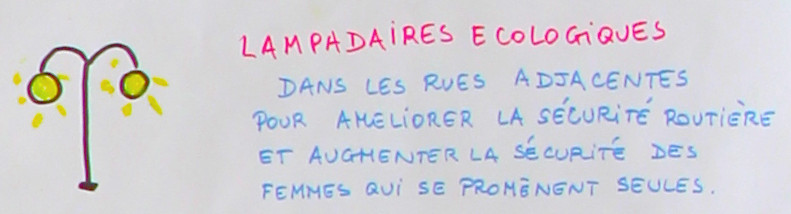 LAMPADAIRES ECOLOGIQUES
DANS LES RUES ADJACENTES
POUR AMELIORER LA SÉCURITÉ ROUTIÈRE
ET AUGMENTER LA SÉCURITÉ DES
FEMMES QUI SE PROMÈNENT SEULES.